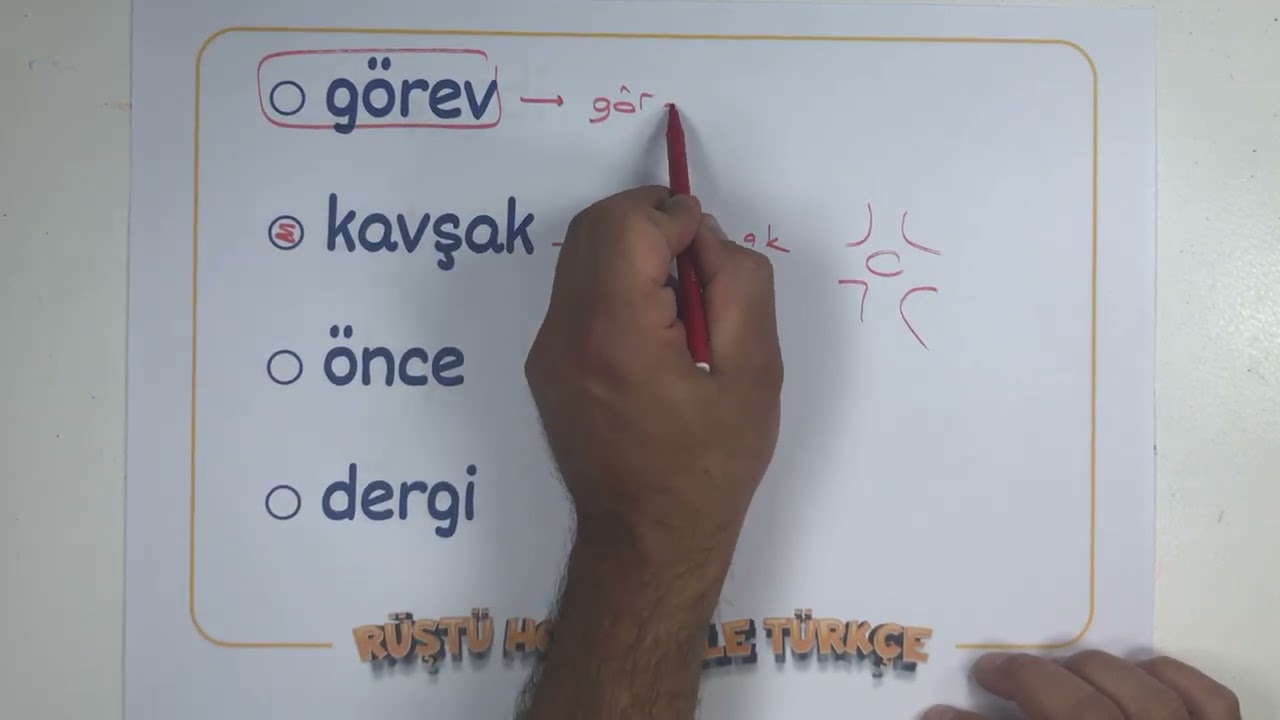 görev → gör
kavşak ak
önce
dergi
RÜŞTÜ HO LE TÜRKÇE